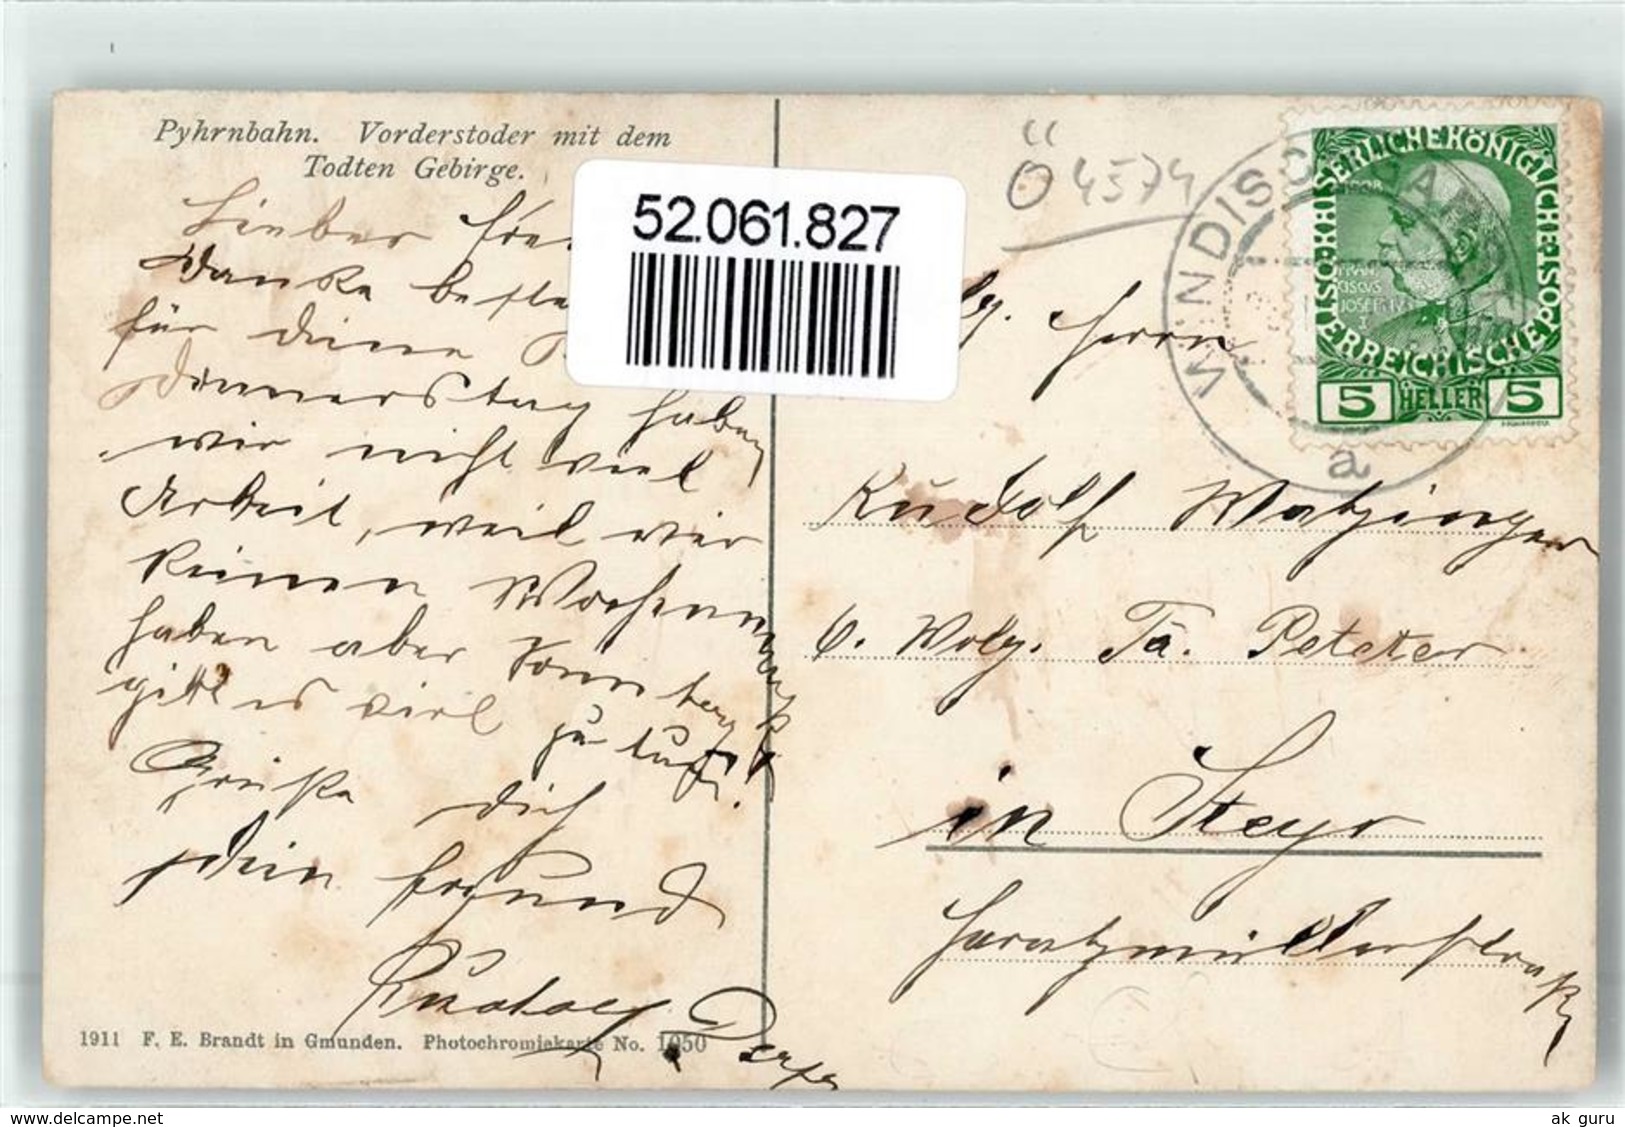 Pyhrnbahn. Vorderstoder mit dem
Todten Gebirge.
52.061.827
Ö 4574
Lieber
Danke beste
für deine
Donnerstag haben
wir nicht viel
Arbeit, weil wir
keinen Wochenmarkt
haben aber Sonntag
gibt es viel zu tun!
Grüße dich
dein Freund
Rudolf
Herrn
Rudolf Watzinger
b. Wolg. Fa. Peteter
in Steyr
Haratzmüllerstraße
KAISERLICHE KÖNIGLICHE ÖSTERREICHISCHE POST
FRANCISCVS JOSEPH I
5 HELLER 5
WINDISCH
a
1911 F. E. Brandt in Gmunden. Photochromiekarte No. 1050
www.delcampe.net
ak guru